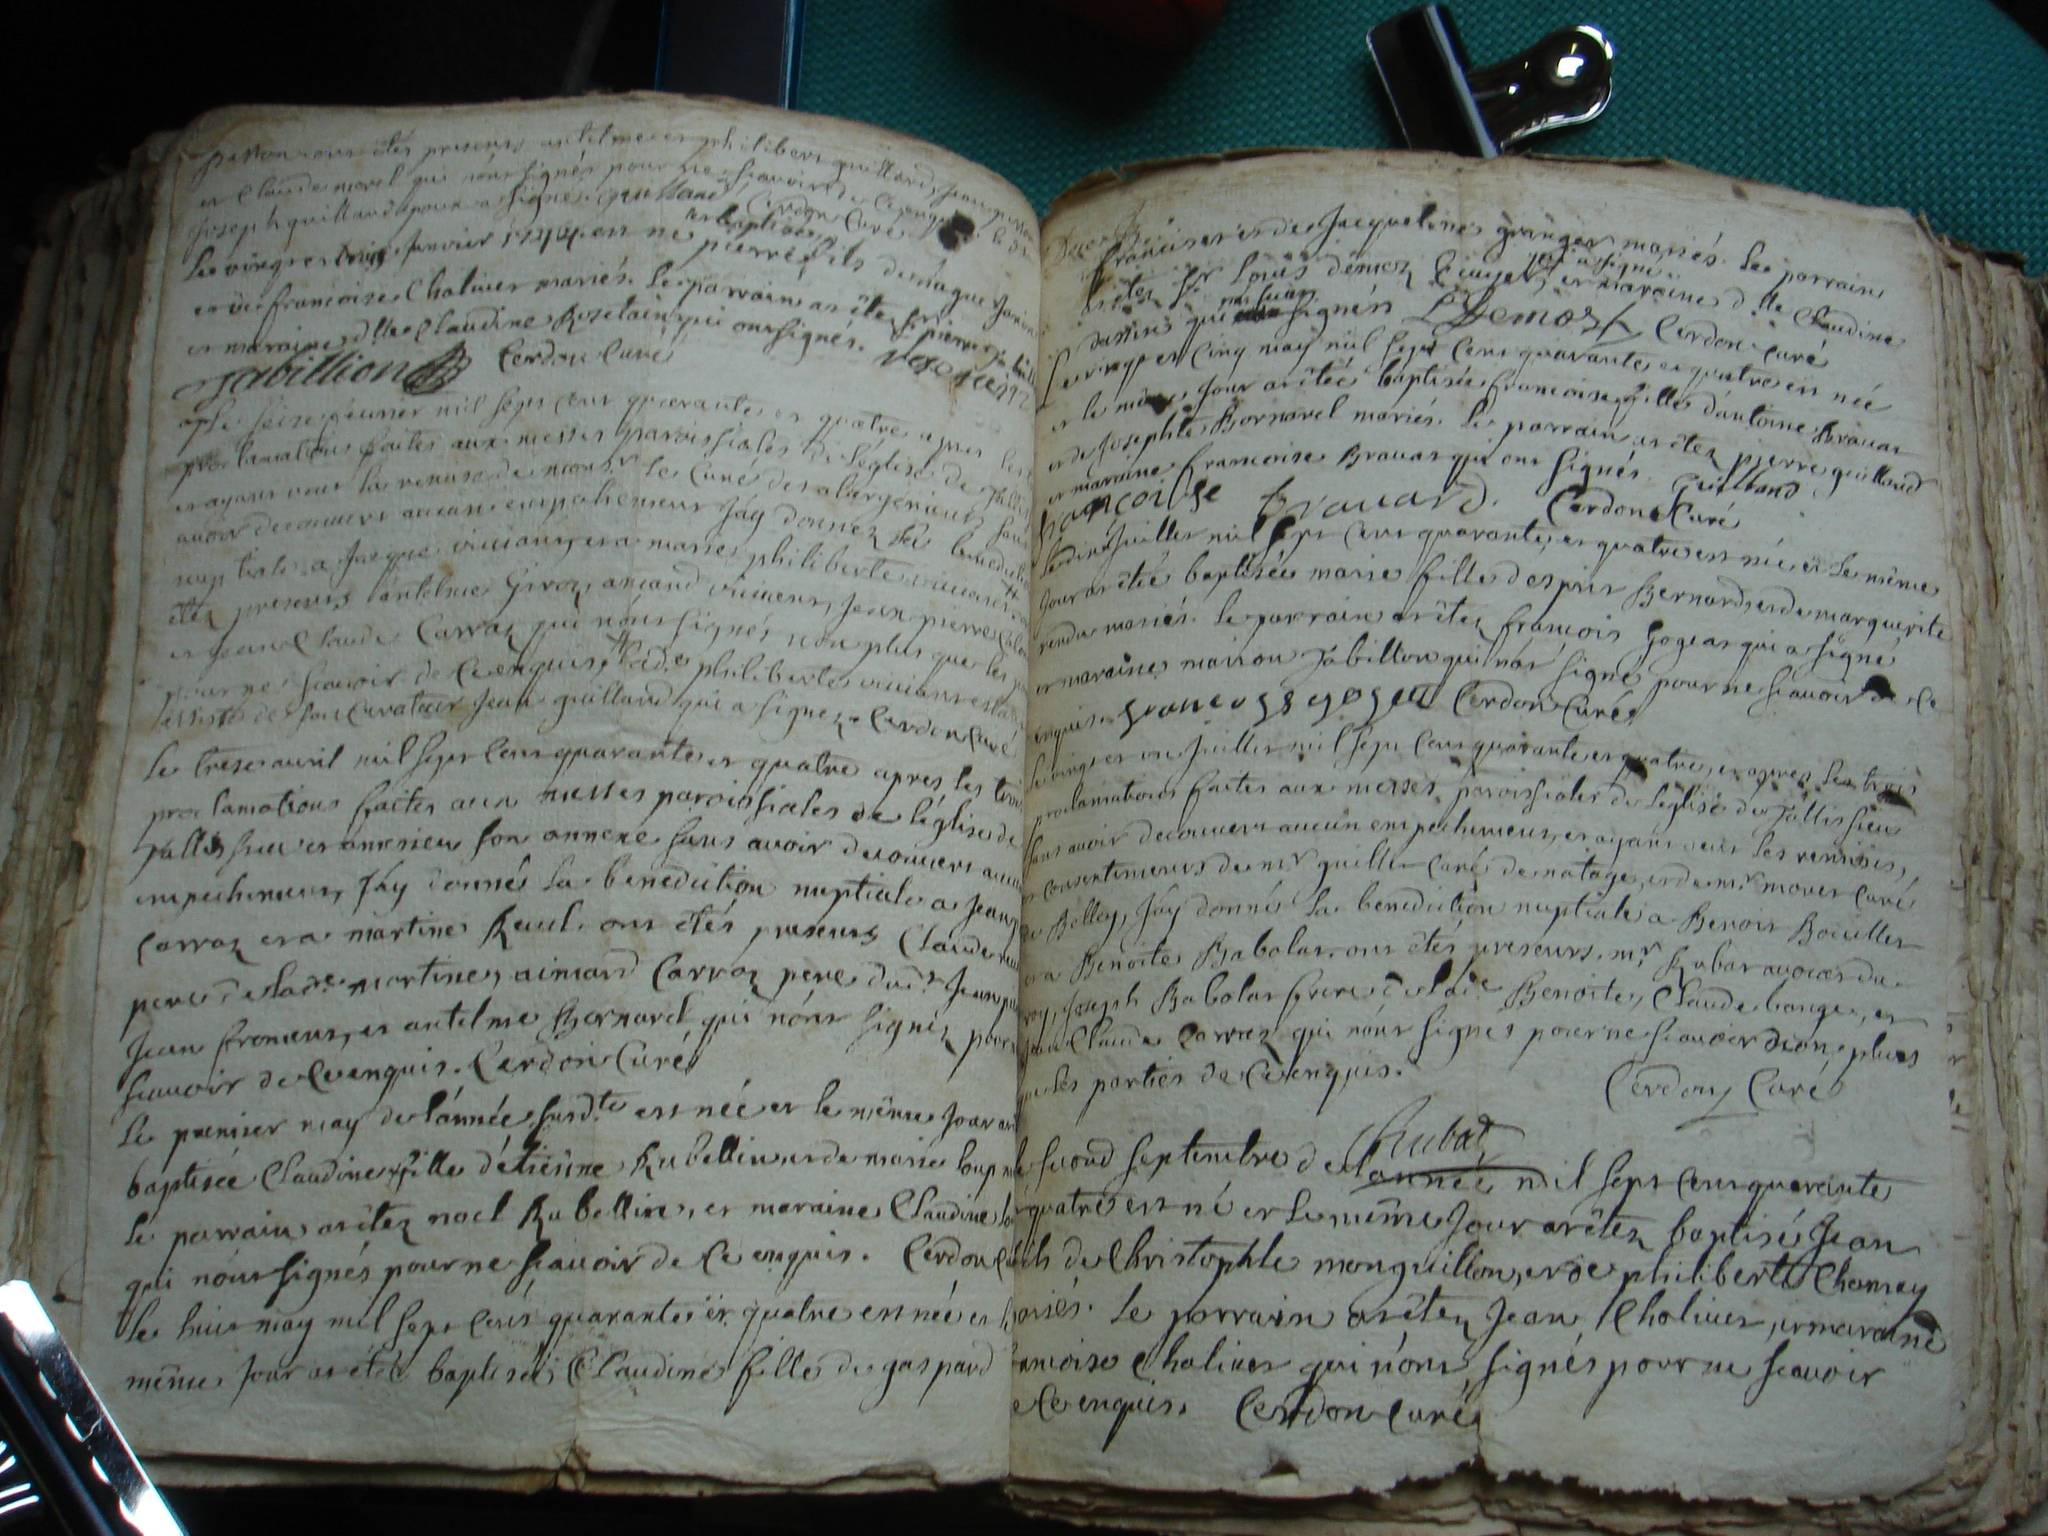 ont étés presens antelme et philibert guillard, Jean
et Claude morel qui n'ont signés pour ne scavoir de ce enquis
Joseph guillard pour a signé. guilland Cerdon Curé
Le vingt et trois Janvier 1744 est né et baptisé pierre fils de Jaque
et de francoise Chalivet mariés. Le parrain at été Sr pierre
et maraine dlle Claudine Rosetain qui ont signés.
Jabillion Cerdon Curé
Le seize fevrier mil sept cent quarante et quatre apres les
proclamations faites aux messes paroissiales de l'église de
et ayant veut la remise de monsr le Curé des alargénieux sans
avoir decouvert aucun empechement J'ay donnez la benediction
nuptiale a Jaque vuiciant, et a marie philiberte
étés presents antelme Giroz, amard vuicient, Jean pierre
et jean Claude Carraz qui n'ont signés non plus que les
pour ne scavoir de ce enquis, lade philiberte
assisté de son curateur Jean guillard qui a signez. Cerdon Curé
Le treze avril mil sept cent quarante et quatre apres les trois
proclamations faites aux messes paroissiales de l'église de
Tallissieu et ameisieu son annexe sans avoir decouvert aucun
empechement, J'ay donnés la benediction nuptiale a Jean
Carraz et a martine Reul. ont étés presents Claude
pere de lade martine, aimard Carraz pere dudt Jean
Jean froment, et antelme Bernard qui n'ont signez pour
scavoir de ce enquis. Cerdon Curé
Le premier may de l'année susdte est née et le même Jour at
baptisée Claudine fille d'étienne Rubellin, et de marie loup
le parrain at étez noel Rubellin, et maraine Claudine
qui n'ont signés pour ne scavoir de ce enquis. Cerdon
Le huit may mil sept cent quarante et quatre est née et le
même Jour at étéé baptisée Claudine fille de gaspard
et de Jacqueline granger mariés. Le parrain
at étez Sr Louis démoz Ecuyer et maraine dlle Claudine
qui signés LDemoz Cerdon Curé
Le vingt et cinq may mil sept cent quarante et quatre est née
et le même Jour at étéé baptisée francoise fille d'antoine Bravat
et de Josephte Bornarel mariés. Le parrain at étez pierre guilland
et maraine francoise Bravat qui ont signés. Guilland
françoise bravard. Cerdon Curé
Juillet mil sept cent quarante et quatre est née, et le même
Jour at étéé baptisée marie fille d'esprit Bernard, et de marguerite
mariés. le parrain at étez francois Gojeat qui a signé
et maraine marion Jabillion qui n'at signé pour ne scavoir de ce
enquis. Cerdon Curé
Le vingt et un Juillet mil sept cent quarante et quatre, et apres les trois
proclamations faites aux messes paroissiales de l'église de Tallissieu
sans avoir decouvert aucun empechement, et ayant veut les remises,
et consentements de mr guillet Curé de natage, et de mr moret Curé
de Belley, J'ay donnés la benediction nuptiale a Benoit Bouillet
et a Benoite Babolat. ont étés presents. mr Rubat avocat du
roy, Joseph Babolat frere de lade Benoite, Claude bange, et
Jean Claude Carraz qui n'ont signés pour ne scavoir non plus
que les parties de ce enquis. Cerdon Curé
Rubat
Le second septembre de l'année mil sept cent quarante
quatre est né et le même Jour at étez baptisé Jean
fils de Christophle monguillon, et de philiberte Charray
mariés. Le parrain at étez Jean Chalivet, et maraine
francoise Chalivet qui n'ont signés pour ne scavoir
de ce enquis. Cerdon Curé